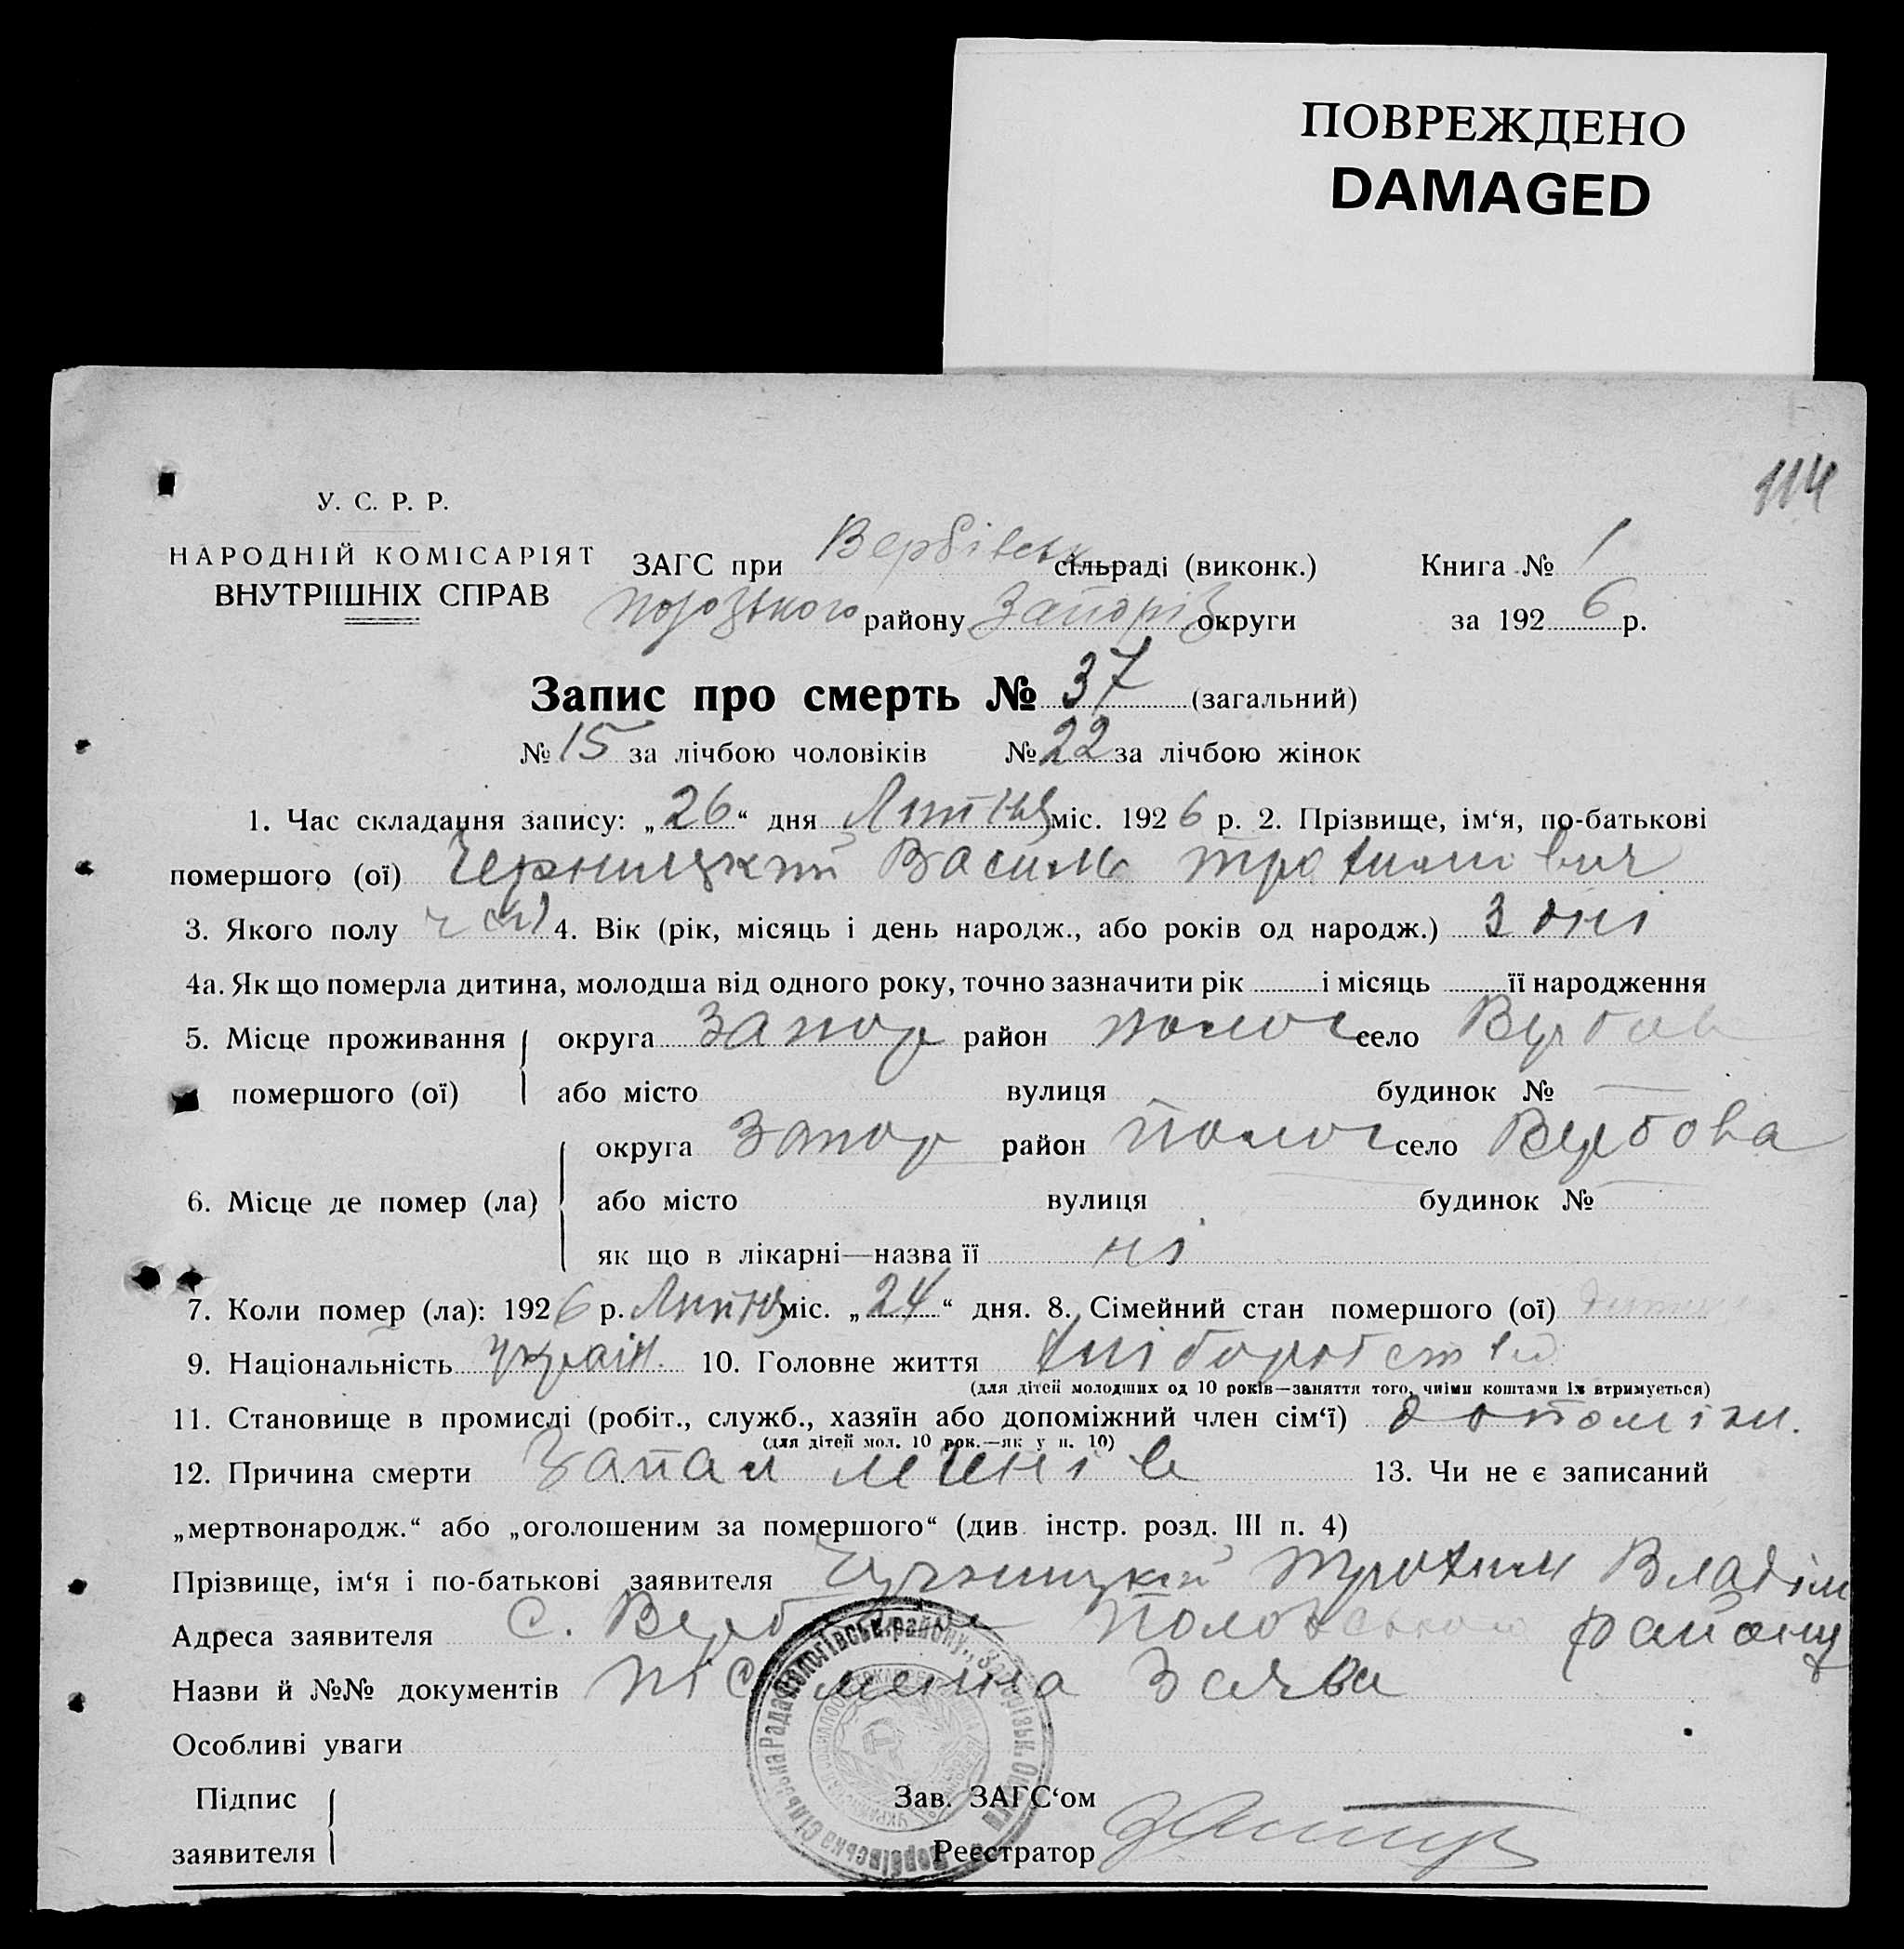 ПОВРЕЖДЕНО
DAMAGED
114
У. С. Р. Р.
НАРОДНІЙ КОМІСАРІЯТ
ВНУТРІШНІХ СПРАВ
ЗАГС при Вербівськ сільраді (виконк.) Книга № 1
району Запоріз округи за 1926 р.
Запис про смерть № 37 (загальний)
№ 15 за лічбою чоловіків № 22 за лічбою жінок
1. Час складання запису: „26“ дня Липня міс. 1926 р. 2. Прізвище, ім‘я, по-батькові
помершого (ої) Черницкий Василь Трохимович
3. Якого полу чол 4. Вік (рік, місяць і день народж., або років од народж.) 3 дні
4а. Як що померла дитина, молодша від одного року, точно зазначити рік і місяць її народження
5. Місце проживання округа Запор район Полог село Вербов
помершого (ої) або місто вулиця будинок № —
округа Запор район Полог село Вербова
6. Місце де помер (ла) або місто вулиця будинок № —
як що в лікарні—назва її ні
7. Коли помер (ла): 1926 р. Липня міс. „24“ дня. 8. Сімейний стан помершого (ої) дитина
9. Національність Україн. 10. Головне життя хліборобство
(для дітей молодших од 10 років—заняття того, чиїми коштами їх втримується)
11. Становище в промислі (робіт., служб., хазяїн або допоміжний член сім‘ї) допоміжн.
(для дітей мол. 10 рок.—як у п. 10)
12. Причина смерти Запал 13. Чи не є записаний
„мертвонародж.“ або „оголошеним за помершого“ (див. інстр. розд. III п. 4)
Прізвище, ім‘я і по-батькові заявителя Черницкий Трохим Владім
Адреса заявителя с. Вербова Пологського району
Назви й №№ документів Пісьменна Заява
Особливі уваги
Підпис
заявителя
Зав. ЗАГС‘ом
Реєстратор
Вербівська Сільська Рада Пологівськ. району, Запорізьк. Округи